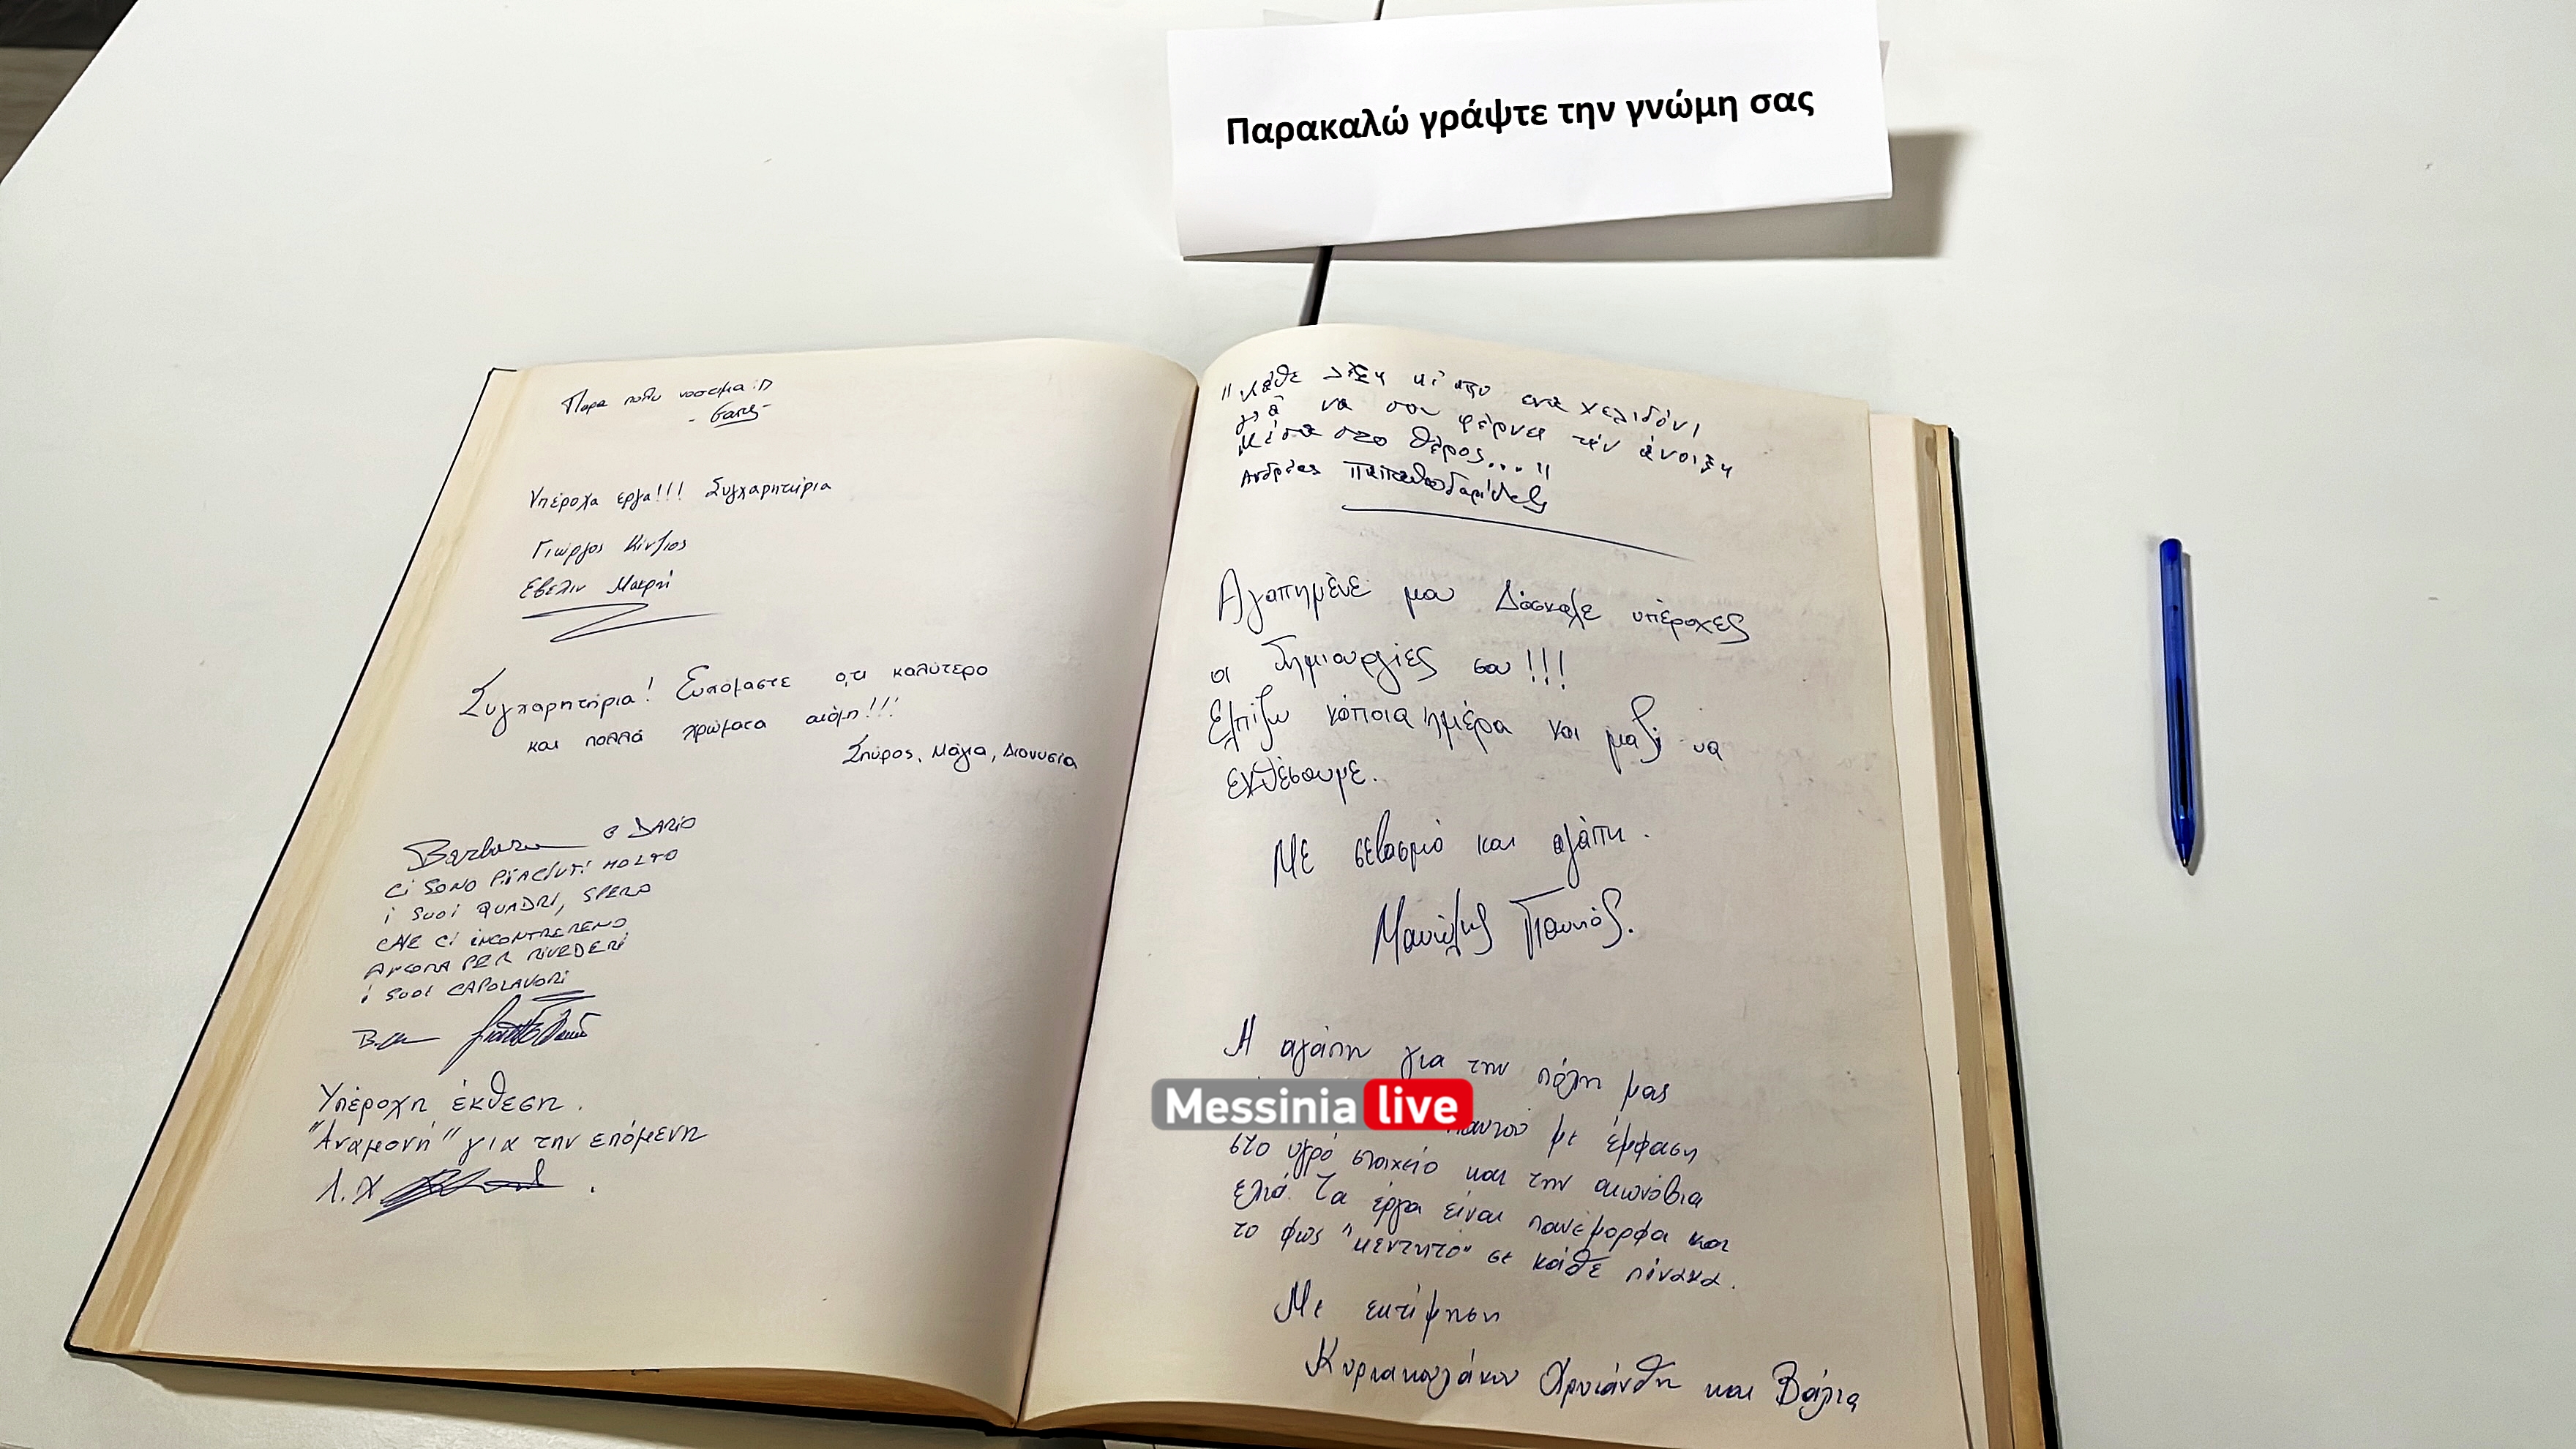 Παρακαλώ γράψτε την γνώμη σας
Παρα πολυ νοστιμα :D
Υπέροχα εργα!!! Συγχαρητήρια
Γιώργος
Εβελιν Μακρή
Συγχαρητήρια! Ευχόμαστε ο,τι καλύτερο
και πολλά χρώματα ακόμη!!!
Σπύρος, Μάγια, Διονυσία
Barbara e DARIO
Ci SONO PIACIUTI MOLTO
i SUOI QUADRI, SPERO
CHE CI INCONTREREMO
ANCORA PER RIVEDERE
i SUOI CAPOLAVORI
Υπέροχη έκθεση.
"Αναμονή" για την επόμενη
Λ.Χ
"Κάθε λέξη κι απο ενα χελιδόνι
για να σου φέρνει την άνοιξη
μέσα στο θέρος..."
Ανδρέας
Αγαπημένε μου Δάσκαλε υπέροχες
οι δημιουργίες σου!!!
Ελπίζω κάποια ημέρα και μαζί να
εκθέσουμε.
Με σεβασμό και αγάπη.
Μανώλης
Η αγάπη για την πόλη μας
παντού με έμφαση
στο υγρό στοιχείο και την αιωνόβια
ελιά. Τα έργα είναι πανέμορφα και
το φως "κεντητό" σε κάθε πίνακα.
Με εκτίμηση
Κυριακουλάκου Χρυσάνθη και Βάλια
Messinia live